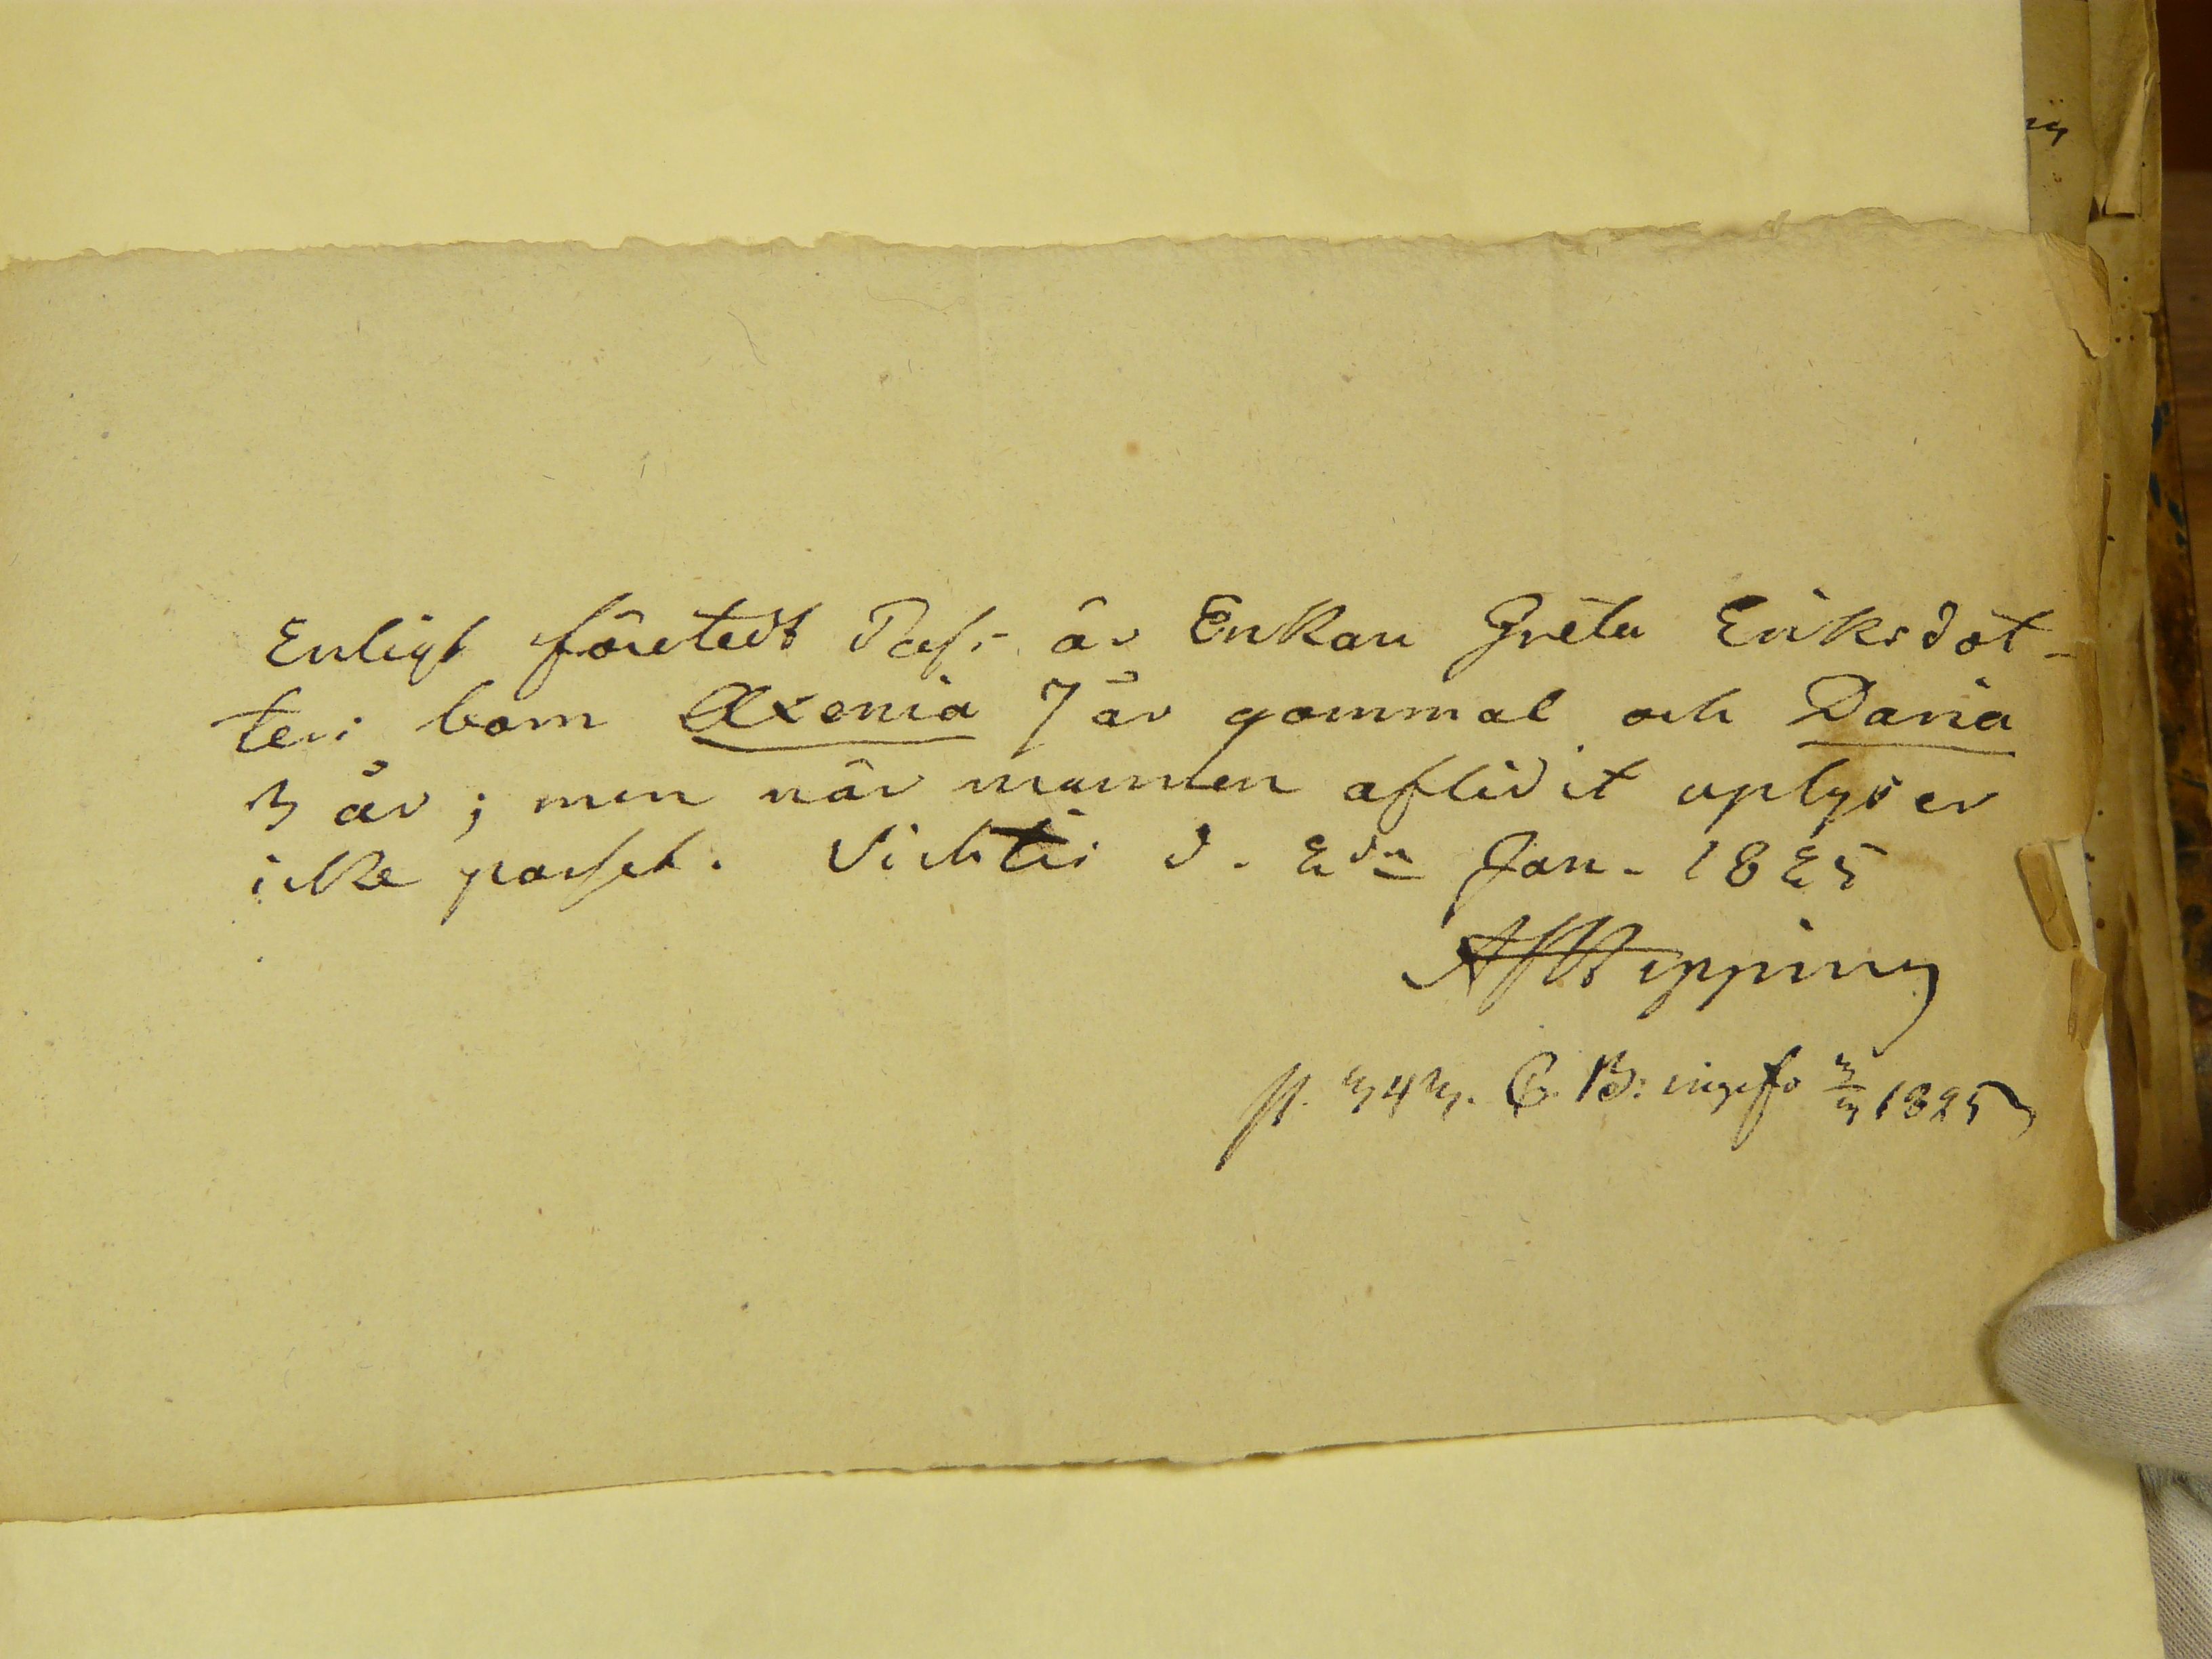 Enligt företedt Pass är Enkan Greta Eriksdot-
ters barn Axenia 7 år gammal och Daria
3 år; men när mannen aflidit uplyser
icke passet. Vichtis d. 2dn Jan. 1825
AJHipping
p. 343. C. B: 3/3 1825